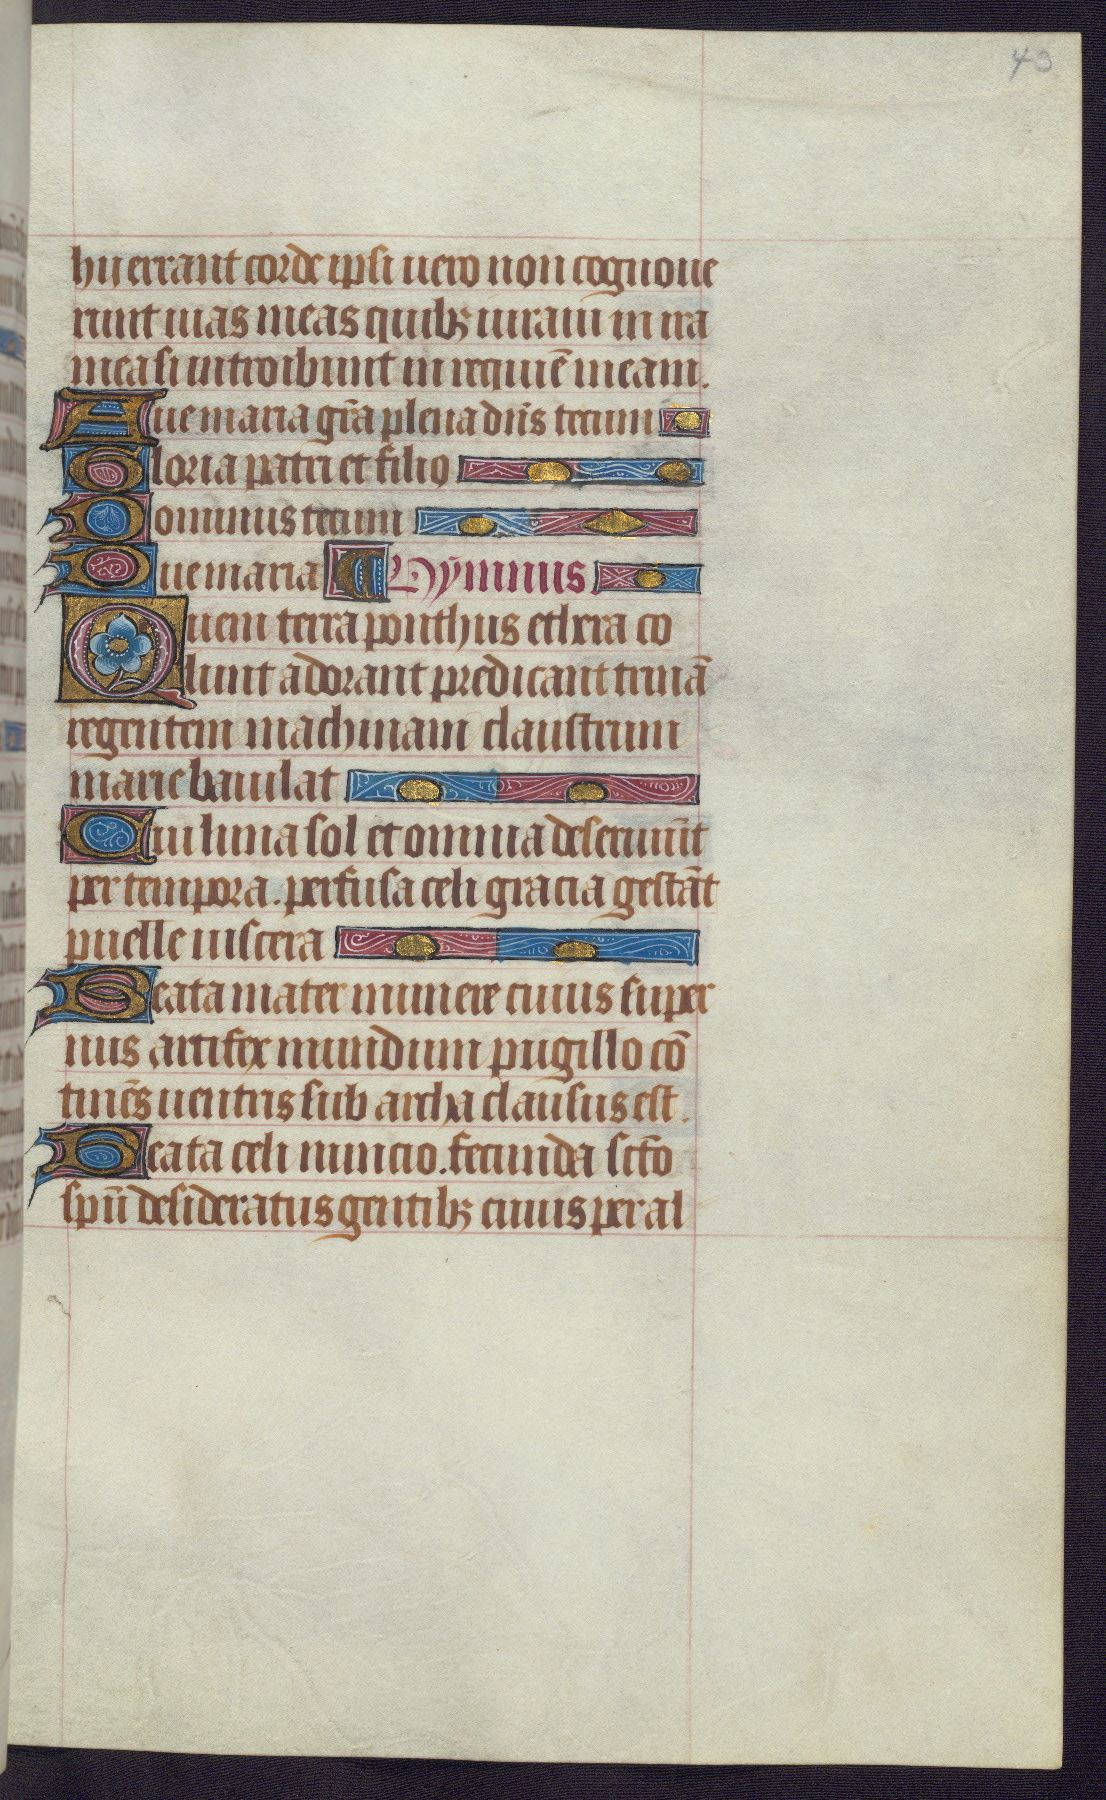 43
hii errant corde ipsi uero non cognoue
runt uias meas quibꝫ iuraui in ira
mea si introibunt in requiē meam.
Aue maria grā plena dn̄s tecum
Gloria patri et filio
Dominus tecum
Aue maria Hymnus
Quem terra ponthus ethera co
lunt adorant predicant trinā
regentem machinam claustrum
marie baiulat
Cui luna sol et omnia deseruiūt
per tempora. perfusa celi gracia gestāt
puelle uiscera
Beata mater munere cuius super
nus artifex mundum pugillo cō
tinēs uentris sub archa clausus est.
Beata celi nuncio. fecunda scō
spū desideratus gentibꝫ cuius per al